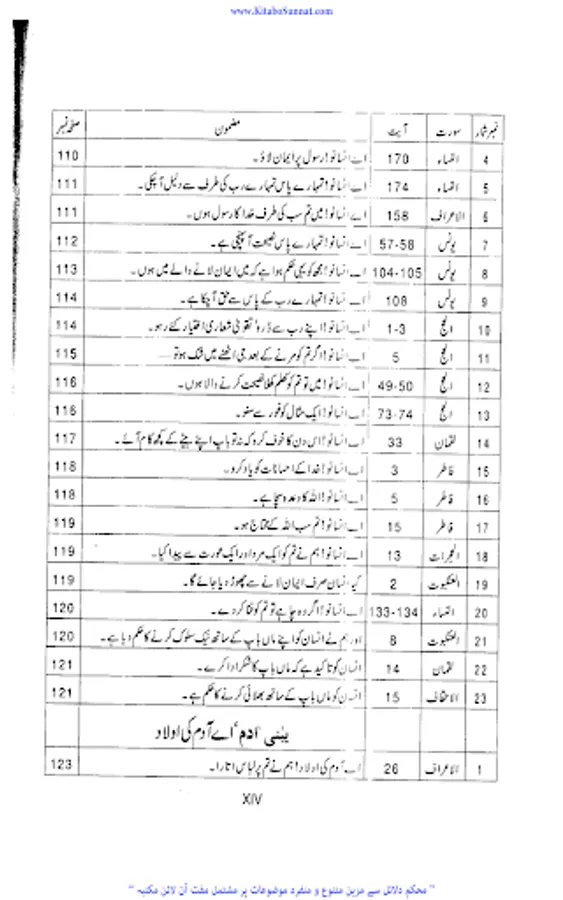 www.KitaboSunnat.com
نمبر شمار سورت آیت مضمون صفحہ نمبر
4 النساء 170 اے انسانو! رسول پر ایمان لاؤ۔ 110
5 النساء 174 اے انسانو! تمہارے پاس تمہارے رب کی طرف سے دلیل آچکی۔ 111
6 الاعراف 158 اے انسانو! میں تم سب کی طرف خدا کا رسول ہوں۔ 111
7 یونس 57-58 اے انسانو! تمہارے پاس نصیحت آپہنچی ہے۔ 112
8 یونس 104-105 اے انسانو! مجھ کو یہی حکم ہوا ہے کہ میں ایمان لانے والے میں ہوں۔ 113
9 یونس 108 اے انسانو! تمہارے رب کے پاس سے حق آچکا ہے۔ 114
10 الحج 1-3 اے انسانو! اپنے رب سے ڈرو' تقویٰ شعاری اختیار کئے رہو۔ 114
11 الحج 5 اے انسانو! اگر تم کو مرنے کے بعد جی اٹھنے میں شک ہو تو...... 115
12 الحج 49-50 اے انسانو! میں تو تم کو کھلم کھلا نصیحت کرنے والا ہوں۔ 116
13 الحج 73-74 اے انسانو! ایک مثال کو غور سے سنو۔ 116
14 لقمان 33 اے انسانو! اس دن کا خوف کرو کہ نہ تو باپ اپنے بیٹے کے کچھ کام آئے۔ 117
15 فاطر 3 اے انسانو! خدا کے احسانات کو یاد کرو۔ 118
16 فاطر 5 اے انسانو! اللہ کا وعدہ سچا ہے۔ 118
17 فاطر 15 اے انسانو! تم سب اللہ کے محتاج ہو۔ 119
18 الحجرات 13 اے انسانو! ہم نے تم کو ایک مرد اور ایک عورت سے پیدا کیا۔ 119
19 العنکبوت 2 کیا انسان صرف ایمان لانے سے چھوڑ دیا جائے گا۔ 119
20 النساء 133-134 اے انسانو! اگر وہ چاہے تو تم کو فنا کر دے۔ 120
21 العنکبوت 8 اور ہم نے انسان کو اپنے ماں باپ کے ساتھ نیک سلوک کرنے کا حکم دیا ہے۔ 120
22 لقمان 14 انسان کو تاکید ہے کہ ماں باپ کا شکر ادا کرے۔ 121
23 الاحقاف 15 انسان کو ماں باپ کے ساتھ بھلائی کرنے کا حکم ہے۔ 121
یٰبنی آدم' اے آدم کی اولاد
1 الاعراف 26 اے آدم کی اولاد! ہم نے تم پر لباس اتارا۔ 123
XIV
" محکم دلائل سے مزین متنوع و منفرد موضوعات پر مشتمل مفت آن لائن مکتبہ "